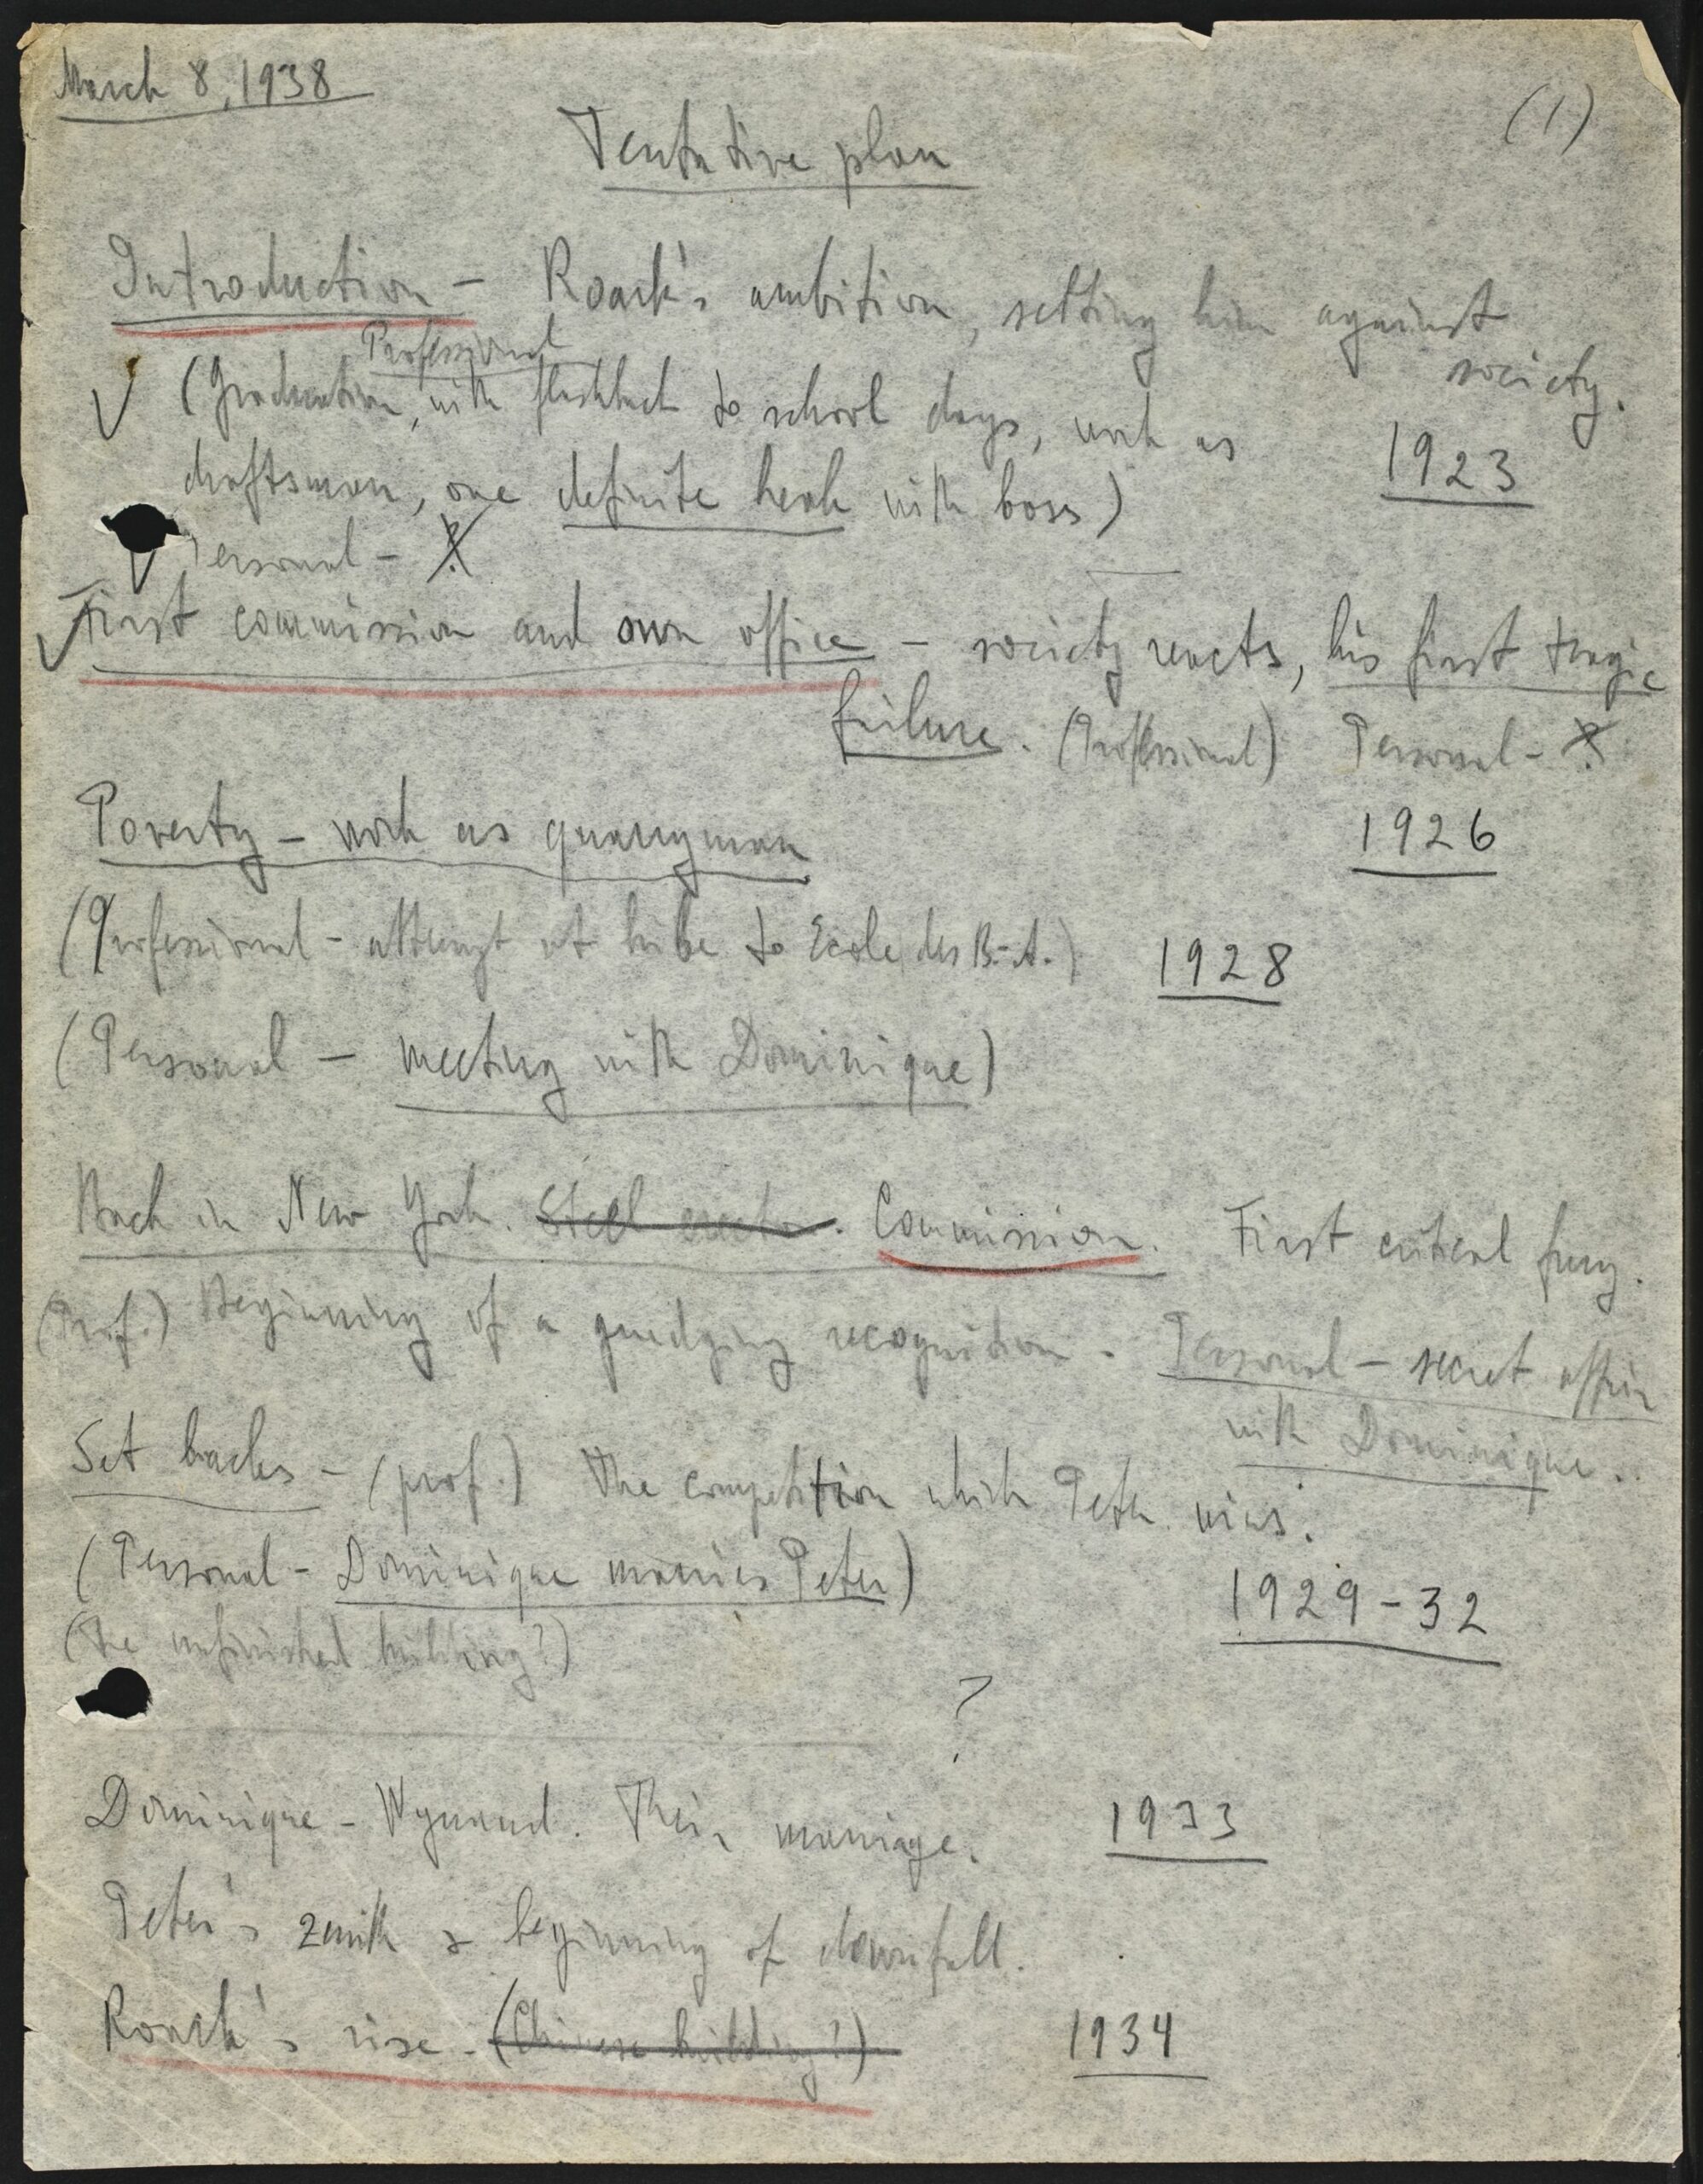 March 8, 1938
(1)
Tentative plan
Introduction – Roark's ambition, setting him against
society.
Professional
(Graduation, with flashback to school days, work as
1923
draftsman, one definite break with boss)
Personal – ?
First commission and own office – society reacts, his first tragic
failure. (Professional) Personal – ?
Poverty – work as quarryman
1926
(Professional – attempt at bribe to Ecole des B.-A.)
1928
(Personal – meeting with Dominique)
Back in New York. Steel erector. Commission. First critical fury.
(Prof.) Beginning of a grudging recognition. Personal – secret affair
with Dominique.
Set backs – (prof.) The competition which Peter wins.
(Personal – Dominique marries Peter)
1929-32
(The unfinished building?)
?
Dominique – Wynand. Their marriage.
1933
Peter's zenith & beginning of downfall.
Roark's rise. (Chinese building?)
1934